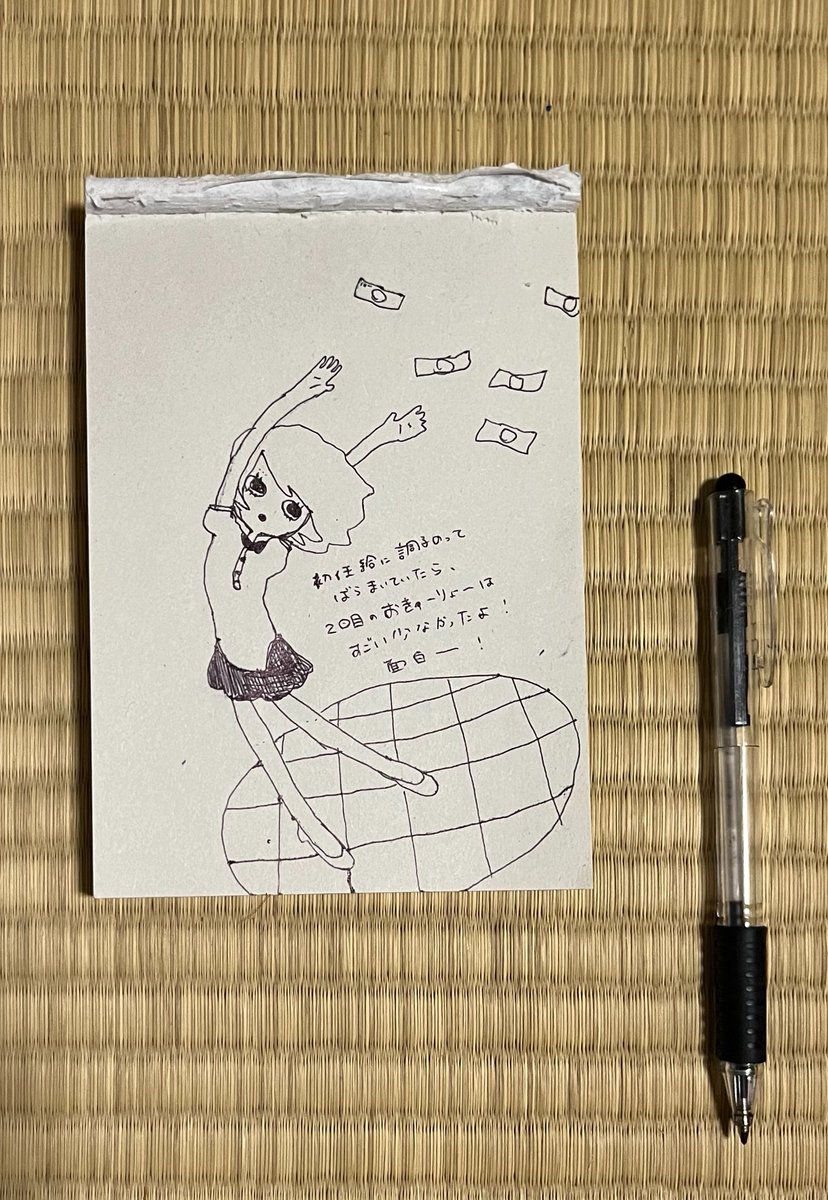 初任給に調子のって
ばらまいていたら、
2回目のおきゅーりょーは
すごい少なかったよ!
面白ー!